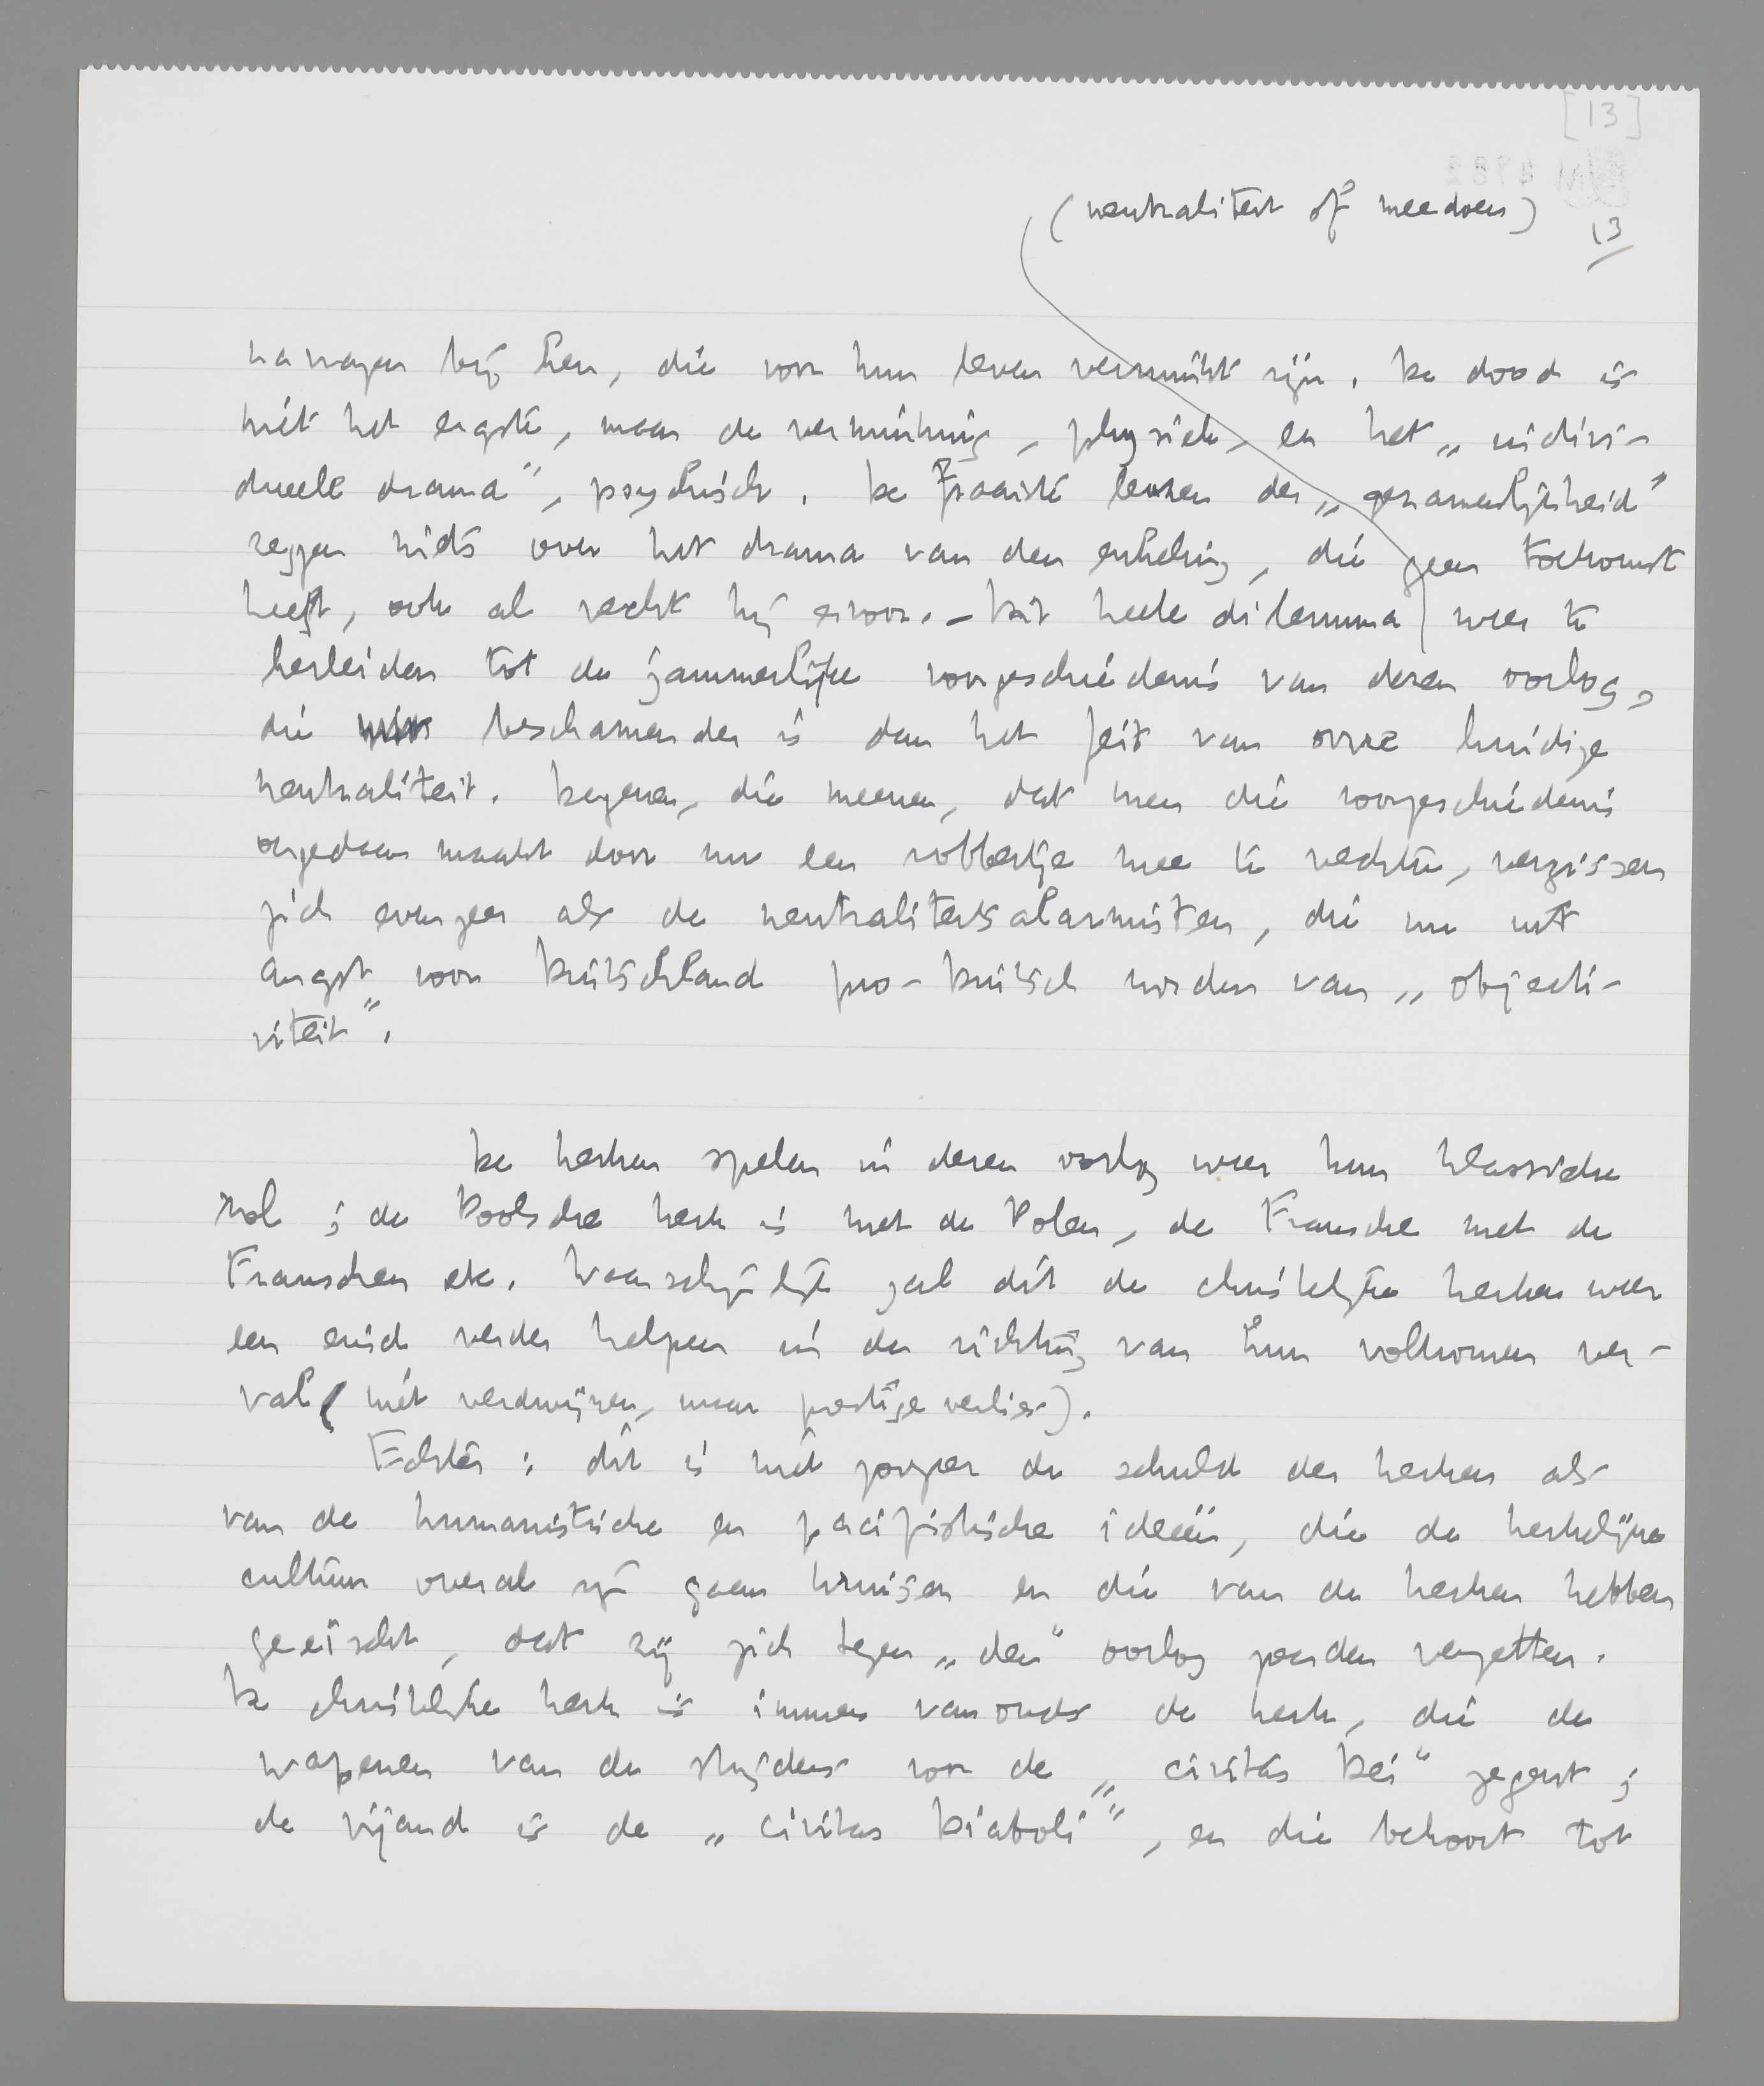 [13]
(neutraliteit of meedoen)
13
navragen bij hen, die voor hun leven verminkt zijn. De dood is
niet het ergste, maar de verminking, physiek, en het „indivi-
dueele drama”, psychisch. De fraaiste leuzen der „gezamenlijkheid”
zeggen niets over het drama van den enkeling, die geen toekomst
heeft, ook al vecht hij ervoor. – Dit heele dilemma weer te
herleiden tot de jammerlijke voorgeschiedenis van dezen oorlog,
die beschamender is dan het feit van onze huidige
neutraliteit. Degenen, die meenen, dat men die voorgeschiedenis
ongedaan maakt door nu een robbertje mee te vechten, vergissen
zich evenzeer als de neutraliteitsalarmisten, die nu uit
angst voor Duitschland pro-Duitsch worden van „objecti-
viteit”.
De kerken spelen in dezen oorlog weer hun klassieke
rol; de Poolsche kerk is met de Polen, de Fransche met de
Franschen etc. Waarschijnlijk zal dit de christelijke kerken weer
een eind verder helpen in de richting van hun volkomen ver-
val (niet verdwijnen, maar prestige verlies).
Echter: dit is niet zoozeer de schuld der kerken als
van de humanistische en pacifistische ideeën, die de kerkelijke
cultuur overal zijn gaan kruisen en die van de kerken hebben
geëischt, dat zij zich tegen „den” oorlog zouden verzetten.
De christelijke kerk is immers vanouds de kerk, die de
wapenen van de strijders voor de „civitas Dei” zegent;
de vijand is de „civitas Diaboli”, en die behoort tot